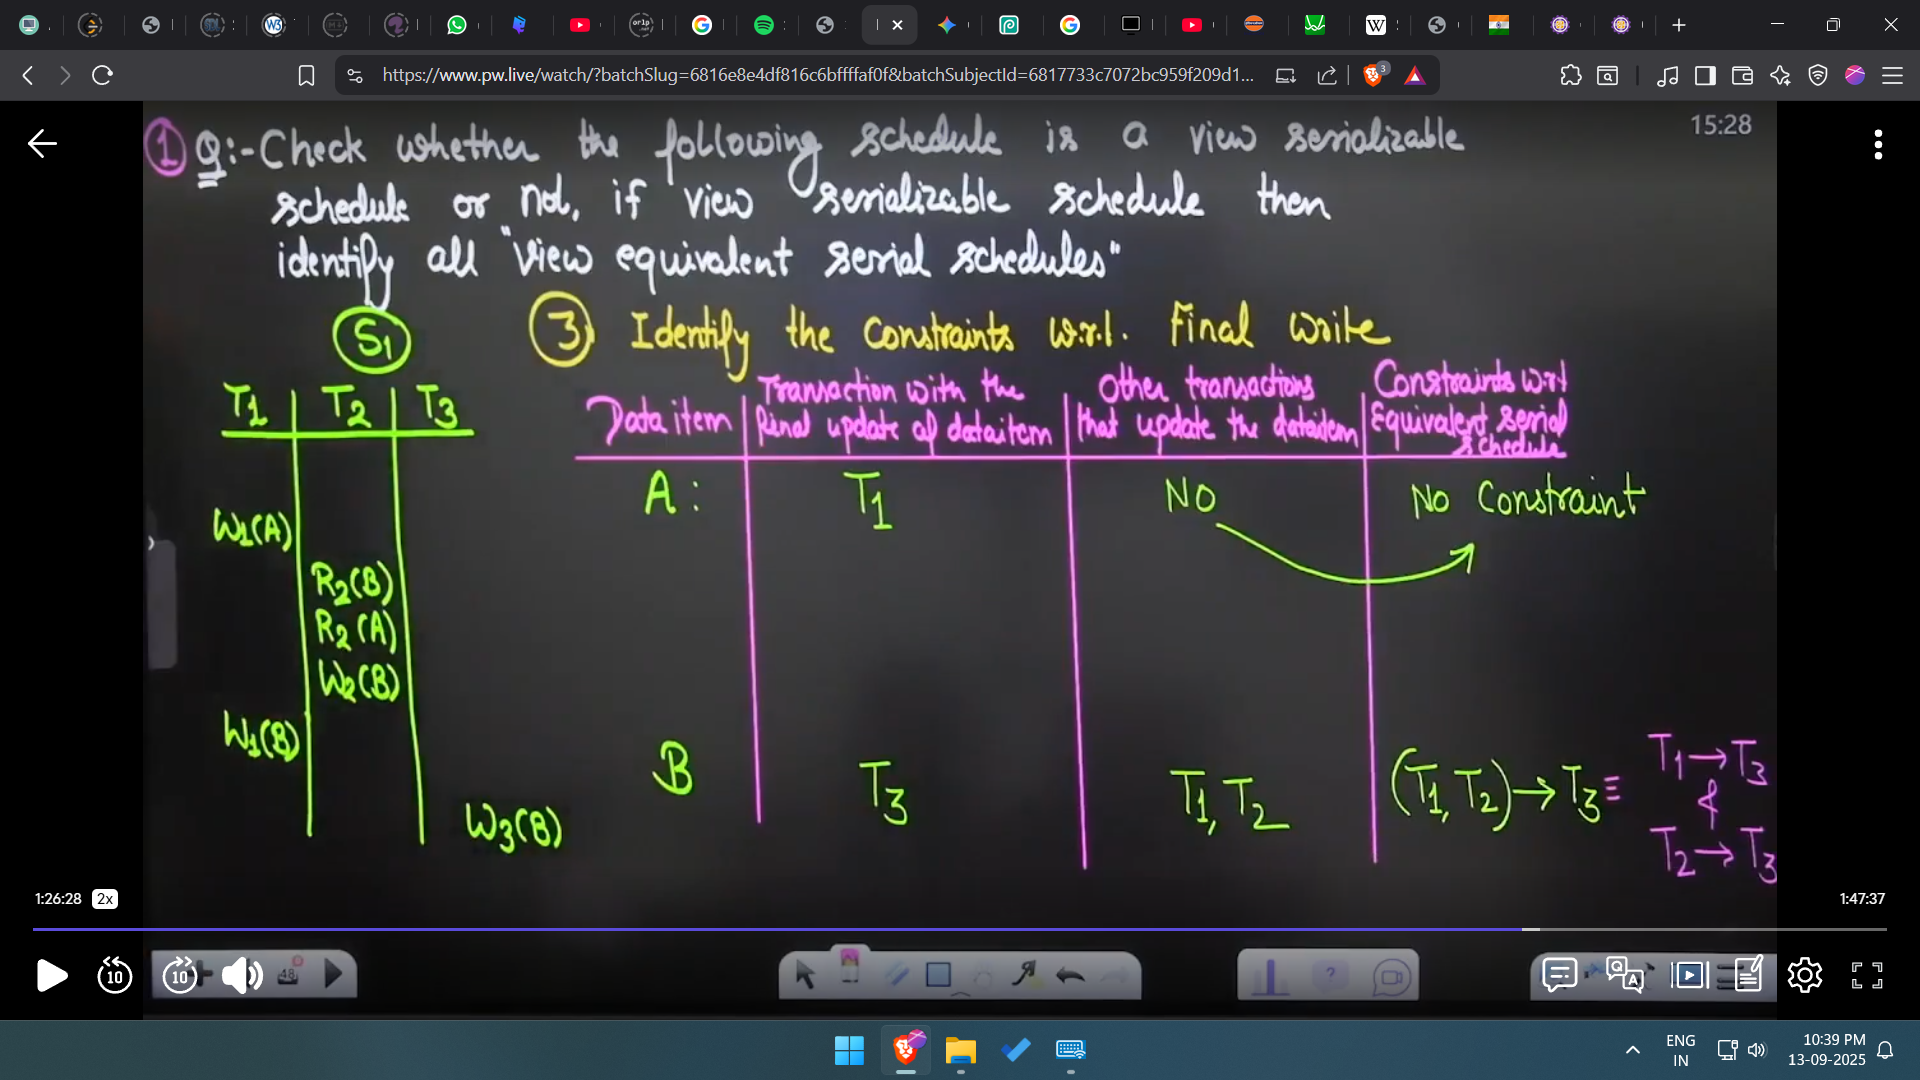 https://www.pw.live/watch/?batchSlug=6816e8e4df816c6bffffaf0f&batchSubjectId=6817733c7072bc959f209d1...
3
15:28
① Q:- Check whether the following schedule is a view serializable
schedule or not, if view serializable schedule then
identify all "view equivalent serial schedules"
S1
③ Identify the Constraints w.r.t. Final Write
T1 T2 T3
W1(A)
R2(B)
R2(A)
W2(B)
W1(B)
W3(B)
Data item
Transaction with the
final update of dataitem
Other transactions
that update the dataitem
Constraints w.r.t
Equivalent serial
schedule
A: T1 NO No Constraint
B T3 T1, T2 (T1, T2) → T3 ≡ T1 → T3
&
T2 → T3
1:26:28 2x 1:47:37
10 10 48
ENG
IN
10:39 PM
13-09-2025